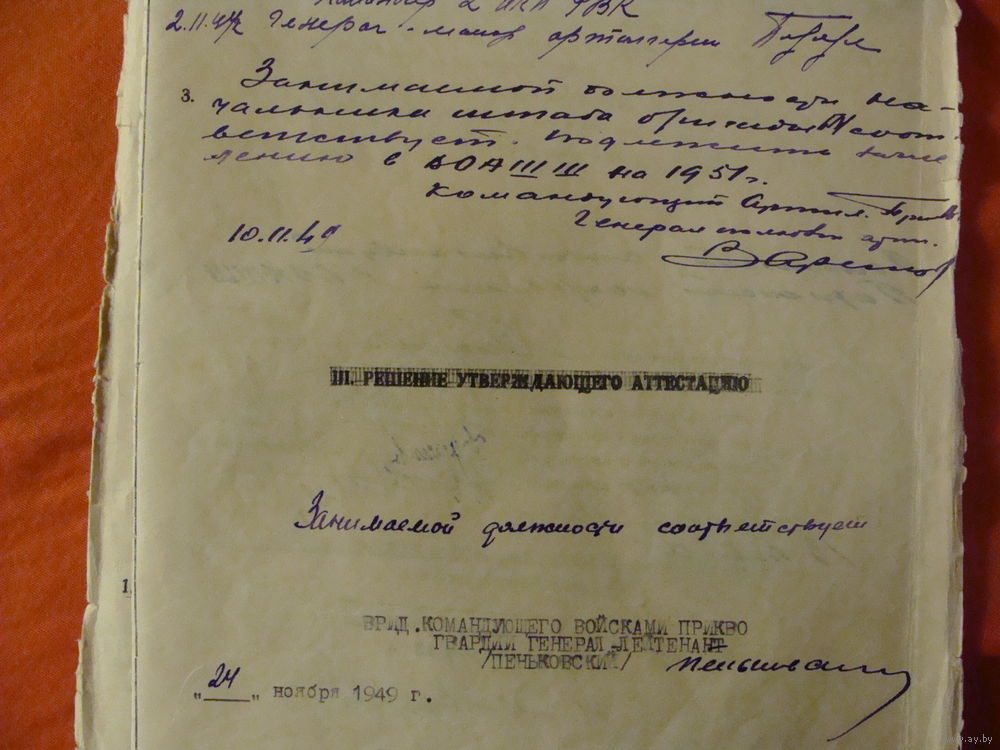 Командир 2 АКП РВК
2.11.49 Генерал-майор артиллерии
3. Занимаемой должности на-
чальника штаба бригады соот-
ветствует. Подлежит зачис
лению в на 1951 г.
Командующий Артил. Прикво
Генерал полковник арт.
10.11.49
III. РЕШЕНИЕ УТВЕРЖДАЮЩЕГО АТТЕСТАЦИЮ
Занимаемой должности соответствует
1.
ВРИД.КОМАНДУЮЩЕГО ВОЙСКАМИ ПРИКВО
ГВАРДИИ ГЕНЕРАЛ-ЛЕЙТЕНАНТ
/ПЕНЬКОВСКИЙ/ Пеньковский
„24„ ноября 1949 г.
www.ay.by